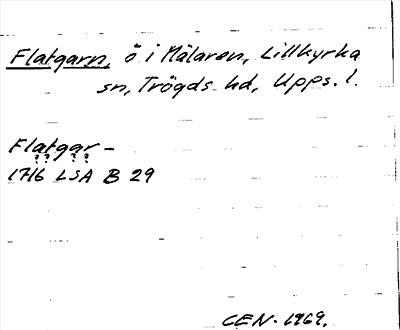 Flatgarn, ö i Mälaren, Lillkyrka
sn, Trögds hd, Upps. l.
Flatgar-
? ? ? ?
1716 LSA B 29
CEN. 1969.